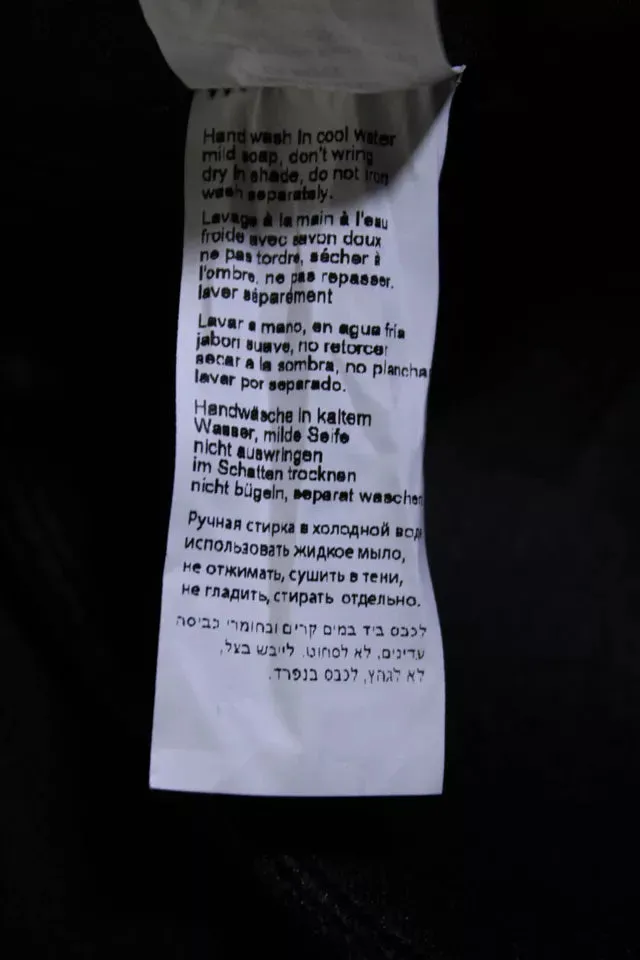 Hand wash in cool water
mild soap, don't wring
dry in shade, do not iron
wash separately.
Lavage à la main à l'eau
froide avec savon doux
ne pas tordre, sécher à
l'ombre, ne pas repasser.
laver séparément
Lavar a mano, en agua fria
jabon suave, no retorcer
secar a la sombra, no plancha
lavar por separado.
Handwäsche in kaltem
Wasser, milde Seife
nicht auswringen
im Schatten trocknen
nicht bügeln, separat waschen
Ручная стирка в холодной воде
использовать жидкое мыло,
не отжимать, сушить в тени,
не гладить, стирать отдельно.
לכבס ביד במים קרים ובחומרי כביסה
עדינים, לא לסחוט. לייבש בצל,
לא לגהץ, לכבס בנפרד.